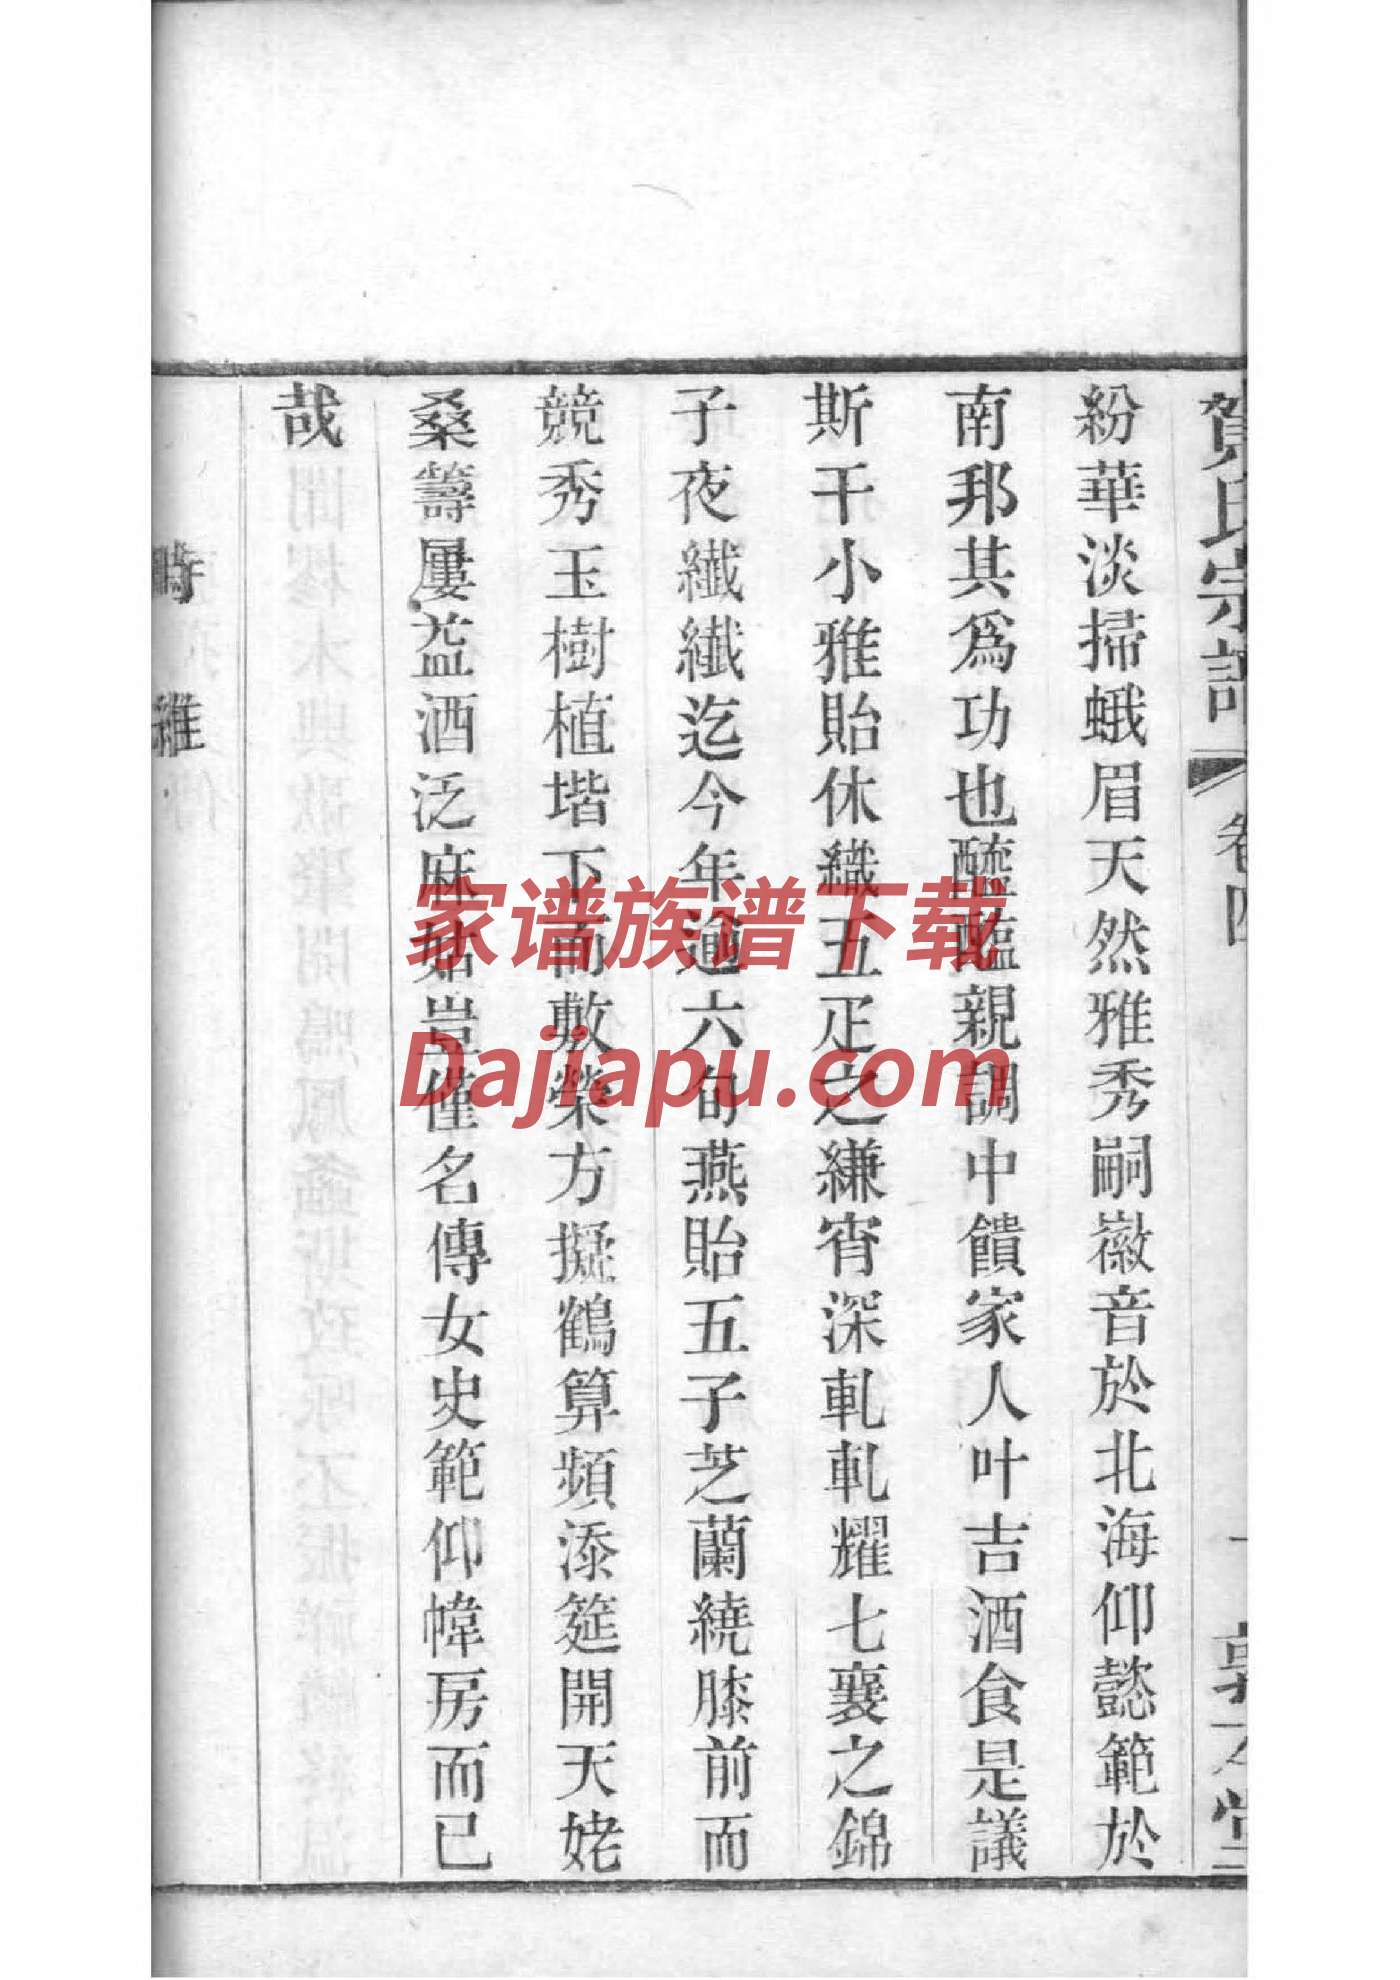 賀氏宗譜 卷四 一
紛華淡掃蛾眉天然雅秀嗣徽音於北海仰懿範於
南邦其為功也醯醢親調中饋家人叶吉酒食是議
斯干小雅貽休織五疋之縑宵深軋軋耀七襄之錦
子夜纖纖迄今年週六旬燕貽五子芝蘭繞膝前而
競秀玉樹植堦下而敷榮方擬鶴算頻添筵開天姥
桑籌屢益酒泛麻姑豈僅名傳女史範仰幃房而已
哉
時維
家谱族谱下载
Dajiapu.com